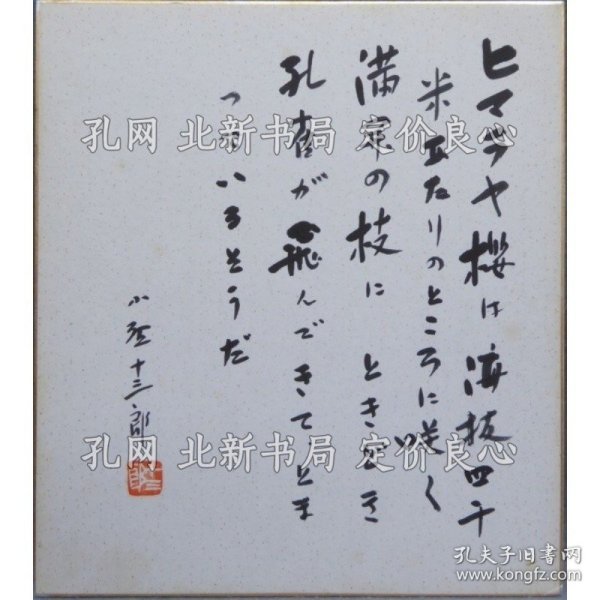 ヒマラヤ櫻は海抜四千
米あたりのところに咲く
満開の枝に ときどき
孔雀が飛んできてとま
っているそうだ
小野十三郎
孔网 北新书局 定价良心
孔网 北新书局 定价良心
孔夫子旧书网
www.kongfz.com